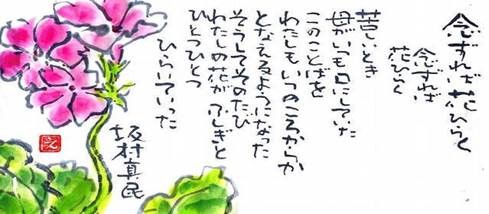 念ずれば花ひらく
念ずれば
花ひらく
苦しいとき
母がいつも口にしていた
このことばを
わたしもいつのころからか
となえるようになった
そうしてそのたび
わたしの花がふしぎと
ひとつひとつ
ひらいていった
坂村真民